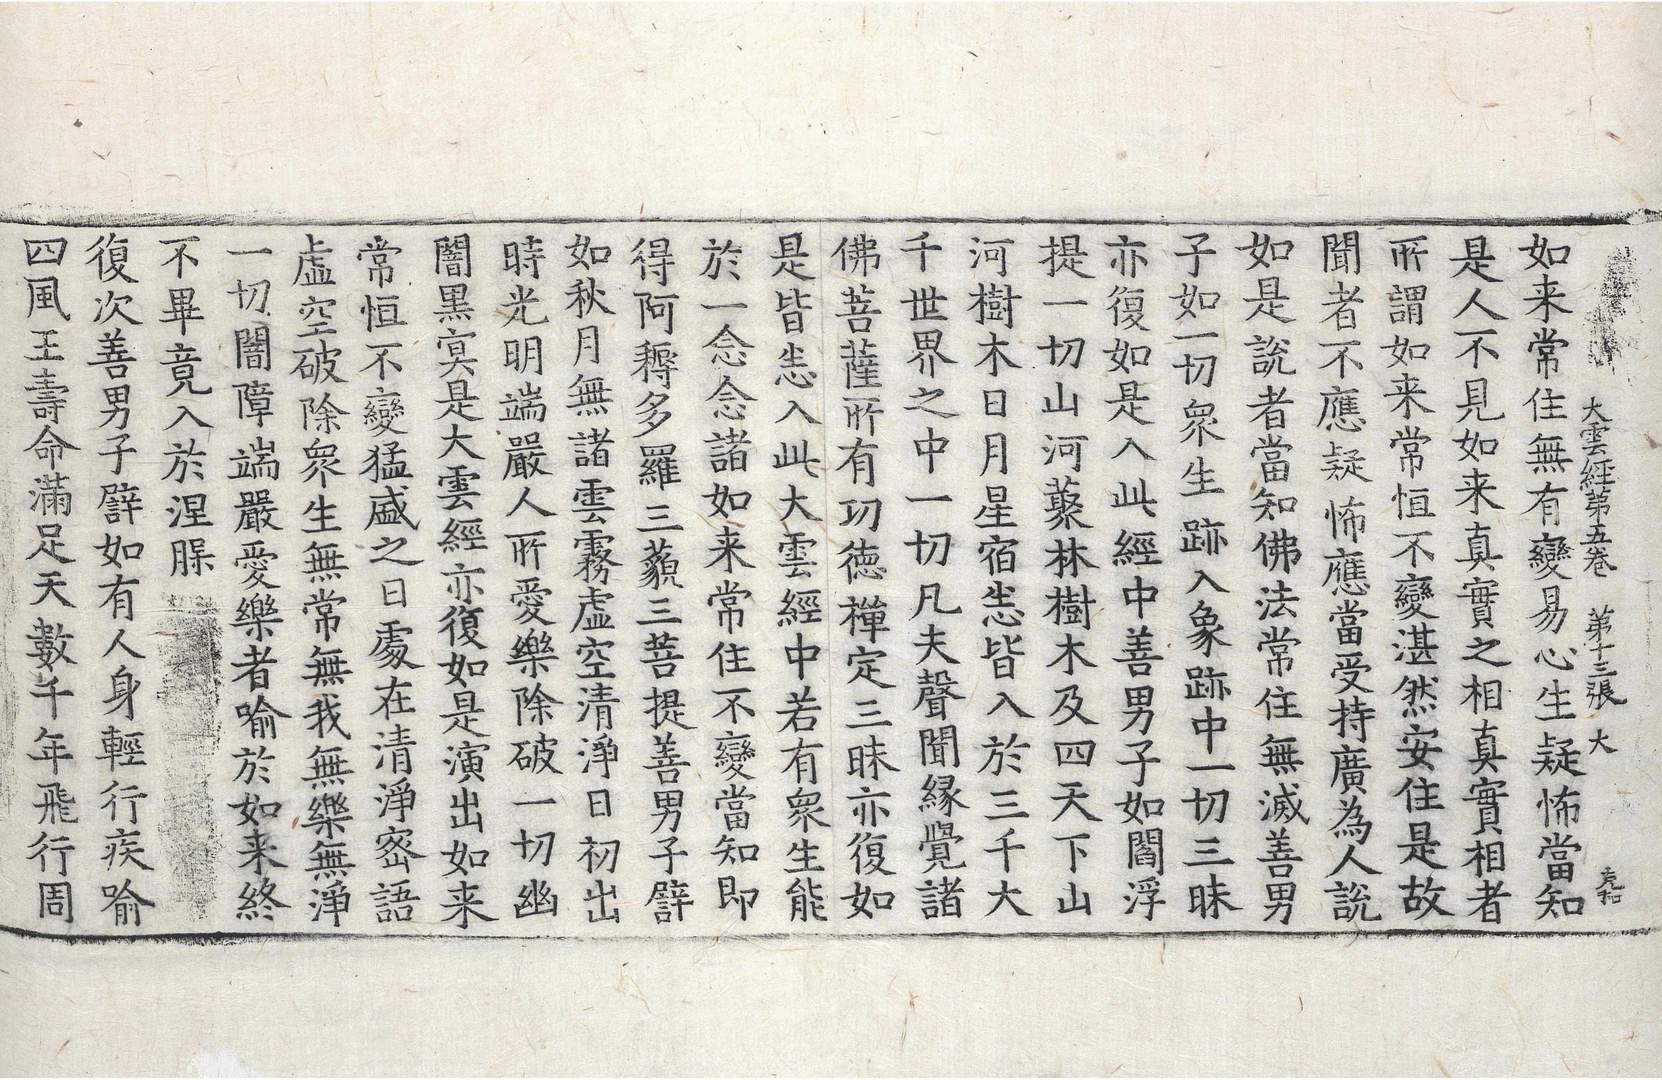 大雲経第五卷　第十三張　大
如来常住無有變易心生疑怖當知
是人不見如来真實之相真實相者
所謂如来常恒不變湛然安住是故
聞者不應疑怖應當受持廣為人說
如是說者當知佛法常住無滅善男
子如一切衆生跡入象跡中一切三昧
亦復如是入此經中善男子如閻浮
提一切山河藂林樹木及四天下山
河樹木日月星宿悉皆入於三千大
千世界之中一切凡夫聲聞縁覺諸
佛菩薩所有功徳禪定三昧亦復如
是皆悉入此大雲經中若有衆生能
於一念念諸如来常住不變當知即
得阿耨多羅三藐三菩提善男子譬
如秋月無諸雲霧虛空清淨日初出
時光明端嚴人所愛樂除破一切幽
闇黒㝠是大雲經亦復如是演出如来
常恒不變猛盛之日處在清淨宻語
虛空破除衆生無常無我無樂無淨
一切闇障端嚴愛樂者喻於如来終
不畢竟入於涅槃
復次善男子譬如有人身輕行疾喻
四風王壽命滿足天數千年飛行周